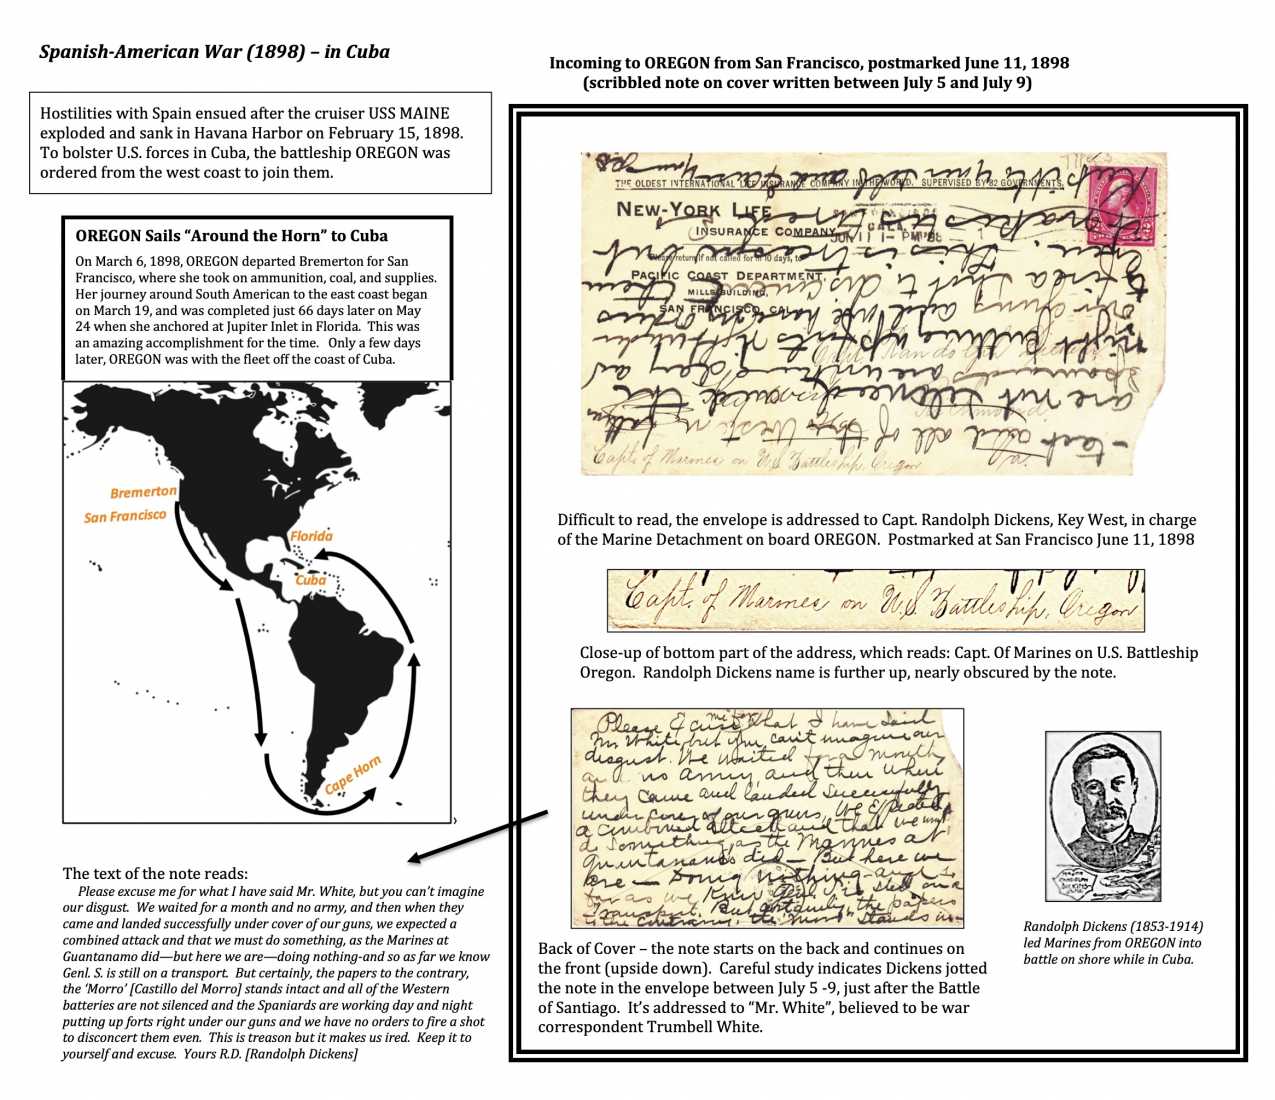 Spanish-American War (1898) – in Cuba
Hostilities with Spain ensued after the cruiser USS MAINE
exploded and sank in Havana Harbor on February 15, 1898.
To bolster U.S. forces in Cuba, the battleship OREGON was
ordered from the west coast to join them.
OREGON Sails “Around the Horn” to Cuba
On March 6, 1898, OREGON departed Bremerton for San
Francisco, where she took on ammunition, coal, and supplies.
Her journey around South American to the east coast began
on March 19, and was completed just 66 days later on May
24 when she anchored at Jupiter Inlet in Florida.  This was
an amazing accomplishment for the time.   Only a few days
later, OREGON was with the fleet off the coast of Cuba.
Bremerton
San Francisco
Florida
Cuba
Cape Horn
The text of the note reads:
Please excuse me for what I have said Mr. White, but you can’t imagine
our disgust.  We waited for a month and no army, and then when they
came and landed successfully under cover of our guns, we expected a
combined attack and that we must do something, as the Marines at
Guantanamo did—but here we are—doing nothing-and so as far we know
Genl. S. is still on a transport.  But certainly, the papers to the contrary,
the ‘Morro’ [Castillo del Morro] stands intact and all of the Western
batteries are not silenced and the Spaniards are working day and night
putting up forts right under our guns and we have no orders to fire a shot
to disconcert them even.  This is treason but it makes us ired.  Keep it to
yourself and excuse.  Yours R.D. [Randolph Dickens]
Incoming to OREGON from San Francisco, postmarked June 11, 1898
(scribbled note on cover written between July 5 and July 9)
THE OLDEST INTERNATIONAL LIFE INSURANCE COMPANY IN THE WORLD.  SUPERVISED BY 82 GOVERNMENTS.
NEW-YORK LIFE
INSURANCE COMPANY,
JUN 11 1- PM '98
Please return if not called for in 10 days, to
PACIFIC COAST DEPARTMENT,
MILLS BUILDING,
SAN FRANCISCO, CAL.
Capt. of Marines on U.S. Battleship, Oregon
Difficult to read, the envelope is addressed to Capt. Randolph Dickens, Key West, in charge
of the Marine Detachment on board OREGON.  Postmarked at San Francisco June 11, 1898
Capt. of Marines on U.S. Battleship, Oregon
Close-up of bottom part of the address, which reads: Capt. Of Marines on U.S. Battleship
Oregon.  Randolph Dickens name is further up, nearly obscured by the note.
Please Excuse me for what I have said
Mr. White but you can't imagine our
disgust. We waited for a month
and no army, and then when
they came and landed successfully
under cover of our guns, we expected
a combined attack and that we must
do something, as the Marines at
Guantanamo did — But here we
are — doing nothing and so
far as we know Genl. S. is still on a
transport. But certainly, the papers
to the contrary, the "Morro" stands in-
Randolph Dickens (1853-1914)
led Marines from OREGON into
battle on shore while in Cuba.
Back of Cover – the note starts on the back and continues on
the front (upside down).  Careful study indicates Dickens jotted
the note in the envelope between July 5 -9, just after the Battle
of Santiago.  It’s addressed to “Mr. White”, believed to be war
correspondent Trumbell White.